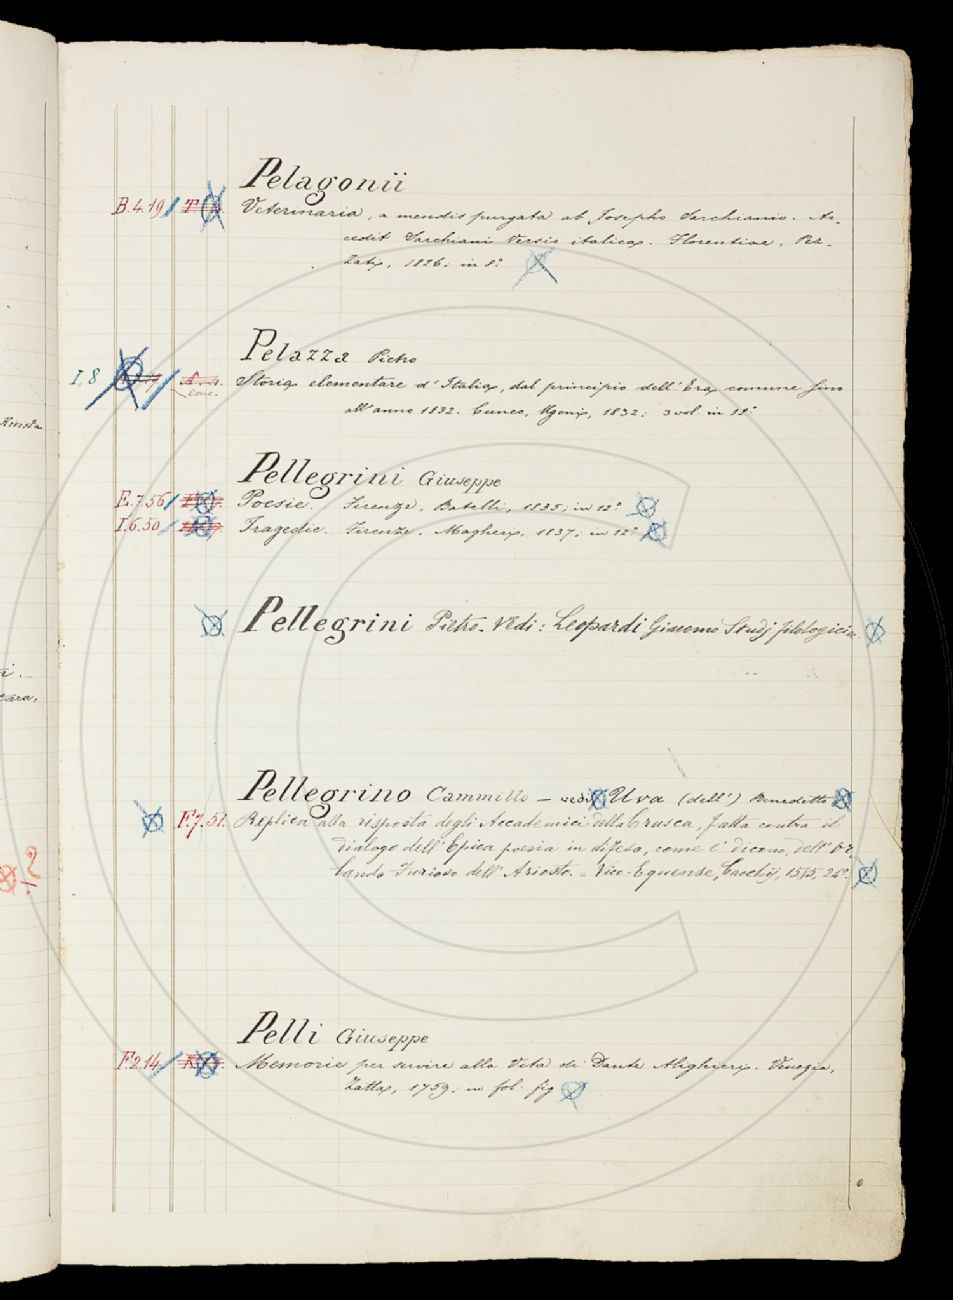 Pelagonii
B.4.19 Veterinaria, a mendis purgata ab Josepho Sarchianio. Ac-
cedit Sarchiani Versio italica. Florentiae, Pez-
zati, 1826; in 8.º
Pelazza Pietro
I, 8 Storia elementare d'Italia, dal principio dell'Era comune fino
all'anno 1832. Cuneo, 1832; 3 vol. in 18.º
Rivista
Pellegrini Giuseppe
E.7.56 Poesie. Firenze, Batelli, 1835; in 12.º
I.6.50 Tragedie. Firenze, Magheri, 1837; in 12.º
Pellegrini Pietro. Vedi: Leopardi Giacomo Studj filologici
Pellegrino Cammillo – vedi Uva (dell') Benedetto
F.7.51. Replica alla risposta degli Accademici della Crusca, fatta contra il
dialogo dell'Epica poesia in difesa, come e' dicono, dell'Or-
lando Furioso dell'Ariosto. – Vico-Equense, Cacchij,
?
Pelli Giuseppe
F.2.14 Memorie per servire alla Vita di Dante Alighieri. Venezia,
Zatta, 1759; in fol. fig